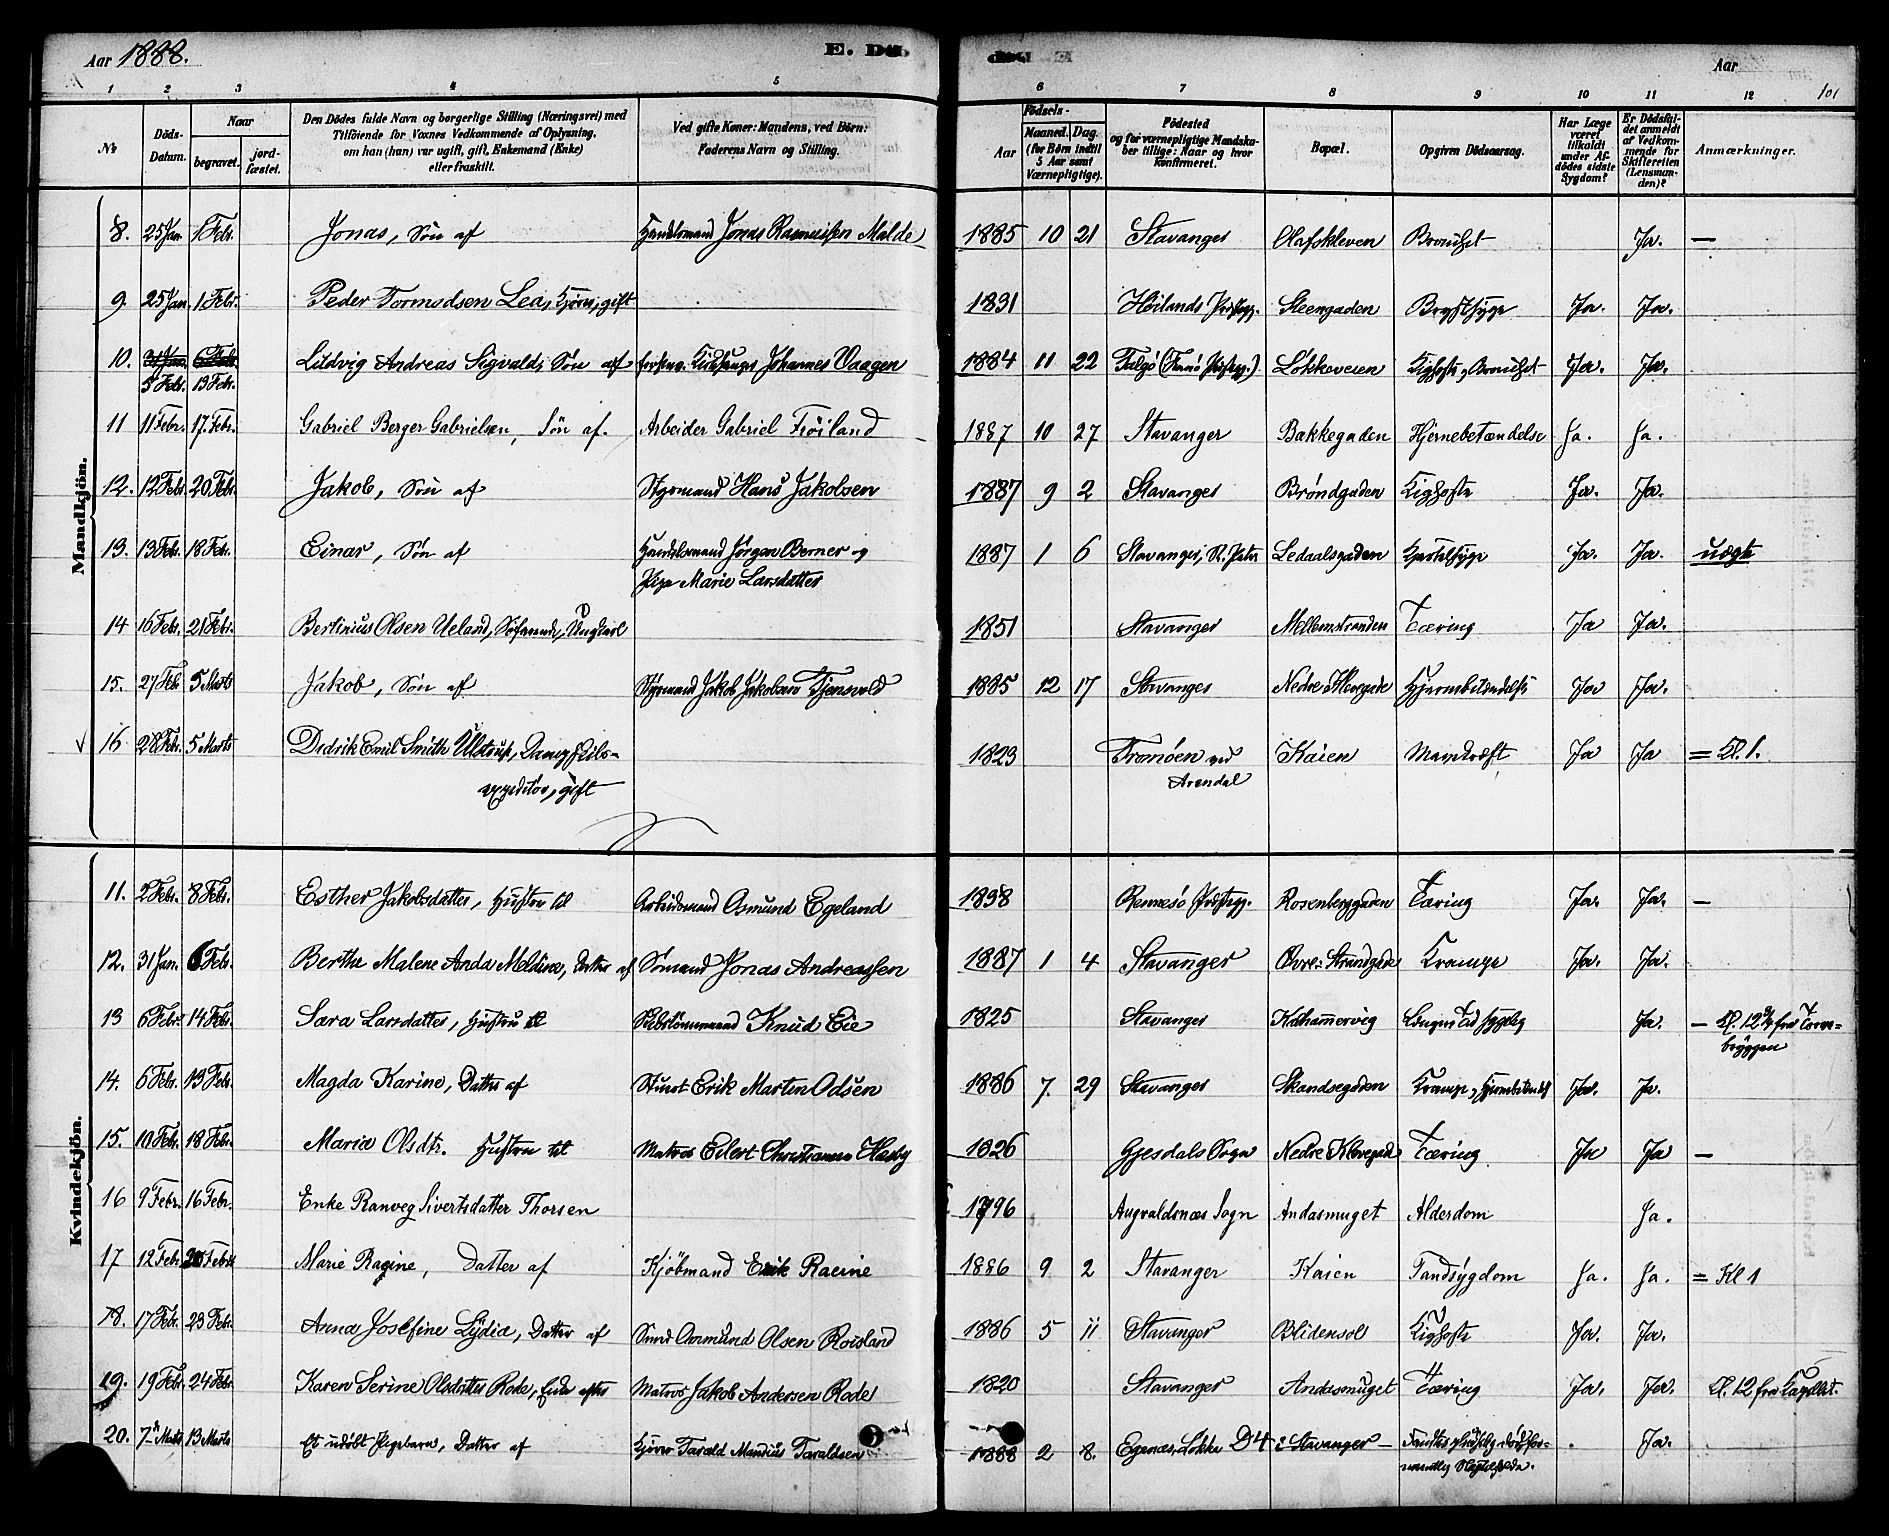 Aar 1888. E. Dø
1 2 3 4 5
No Döds-Datum. Naar begravet. jordfæstet. Den Dödes fulde Navn og borgerlige Stilling (Næringsvei) med Tilföiende for Voxnes Vedkommende af Oplysning, om han (hun) var ugift, gift, Enkemand (Enke) eller fraskilt. Ved gifte Koner: Mandens, ved Börn: Faderens Navn og Stilling.
Aar 101
6 7 8 9 10 11 12
Födsels- Aar Maaned. Dag. (for Börn indtil 5 Aar samt Værnepligtige). Födested og for værnepligtige Mandskaber tillige: Naar og hvor Konfirmeret. Bopæl. Opgiven Dödsaarsag. Har Læge været tilkaldt under Afdödes sidste Sygdom? Er Dödsfaldet anmeldt af Vedkommende for Skifteretten (Lensmanden)? Anmærkninger.
Mandkjön.
8. 25 Jan. 1 Febr. Jonas, Søn af Handelsmand Jonas Rasmussen Malde 1885 10 21 Stavanger Olafskleven Bronchit Ja. —
9. 25 Jan. 1 Febr. Peder Tormodsen Lea, gift 1831 Høilands Prstgj. Steengaden Brystsyge Ja. Ja.
10. 31 Jan. 6 Febr. Ludvig Andreas Sigvald, Søn af Johannes Vaagen 1884 11 22 Talgö (Finnö Prstgj.) Løkkeveien Kighoste, Bronchit Ja. Ja.
5 Febr. 13 Febr.
11 11 Febr. 17. Febr. Gabriel Berger Gabrielsen, Søn af. Arbeider Gabriel Fröiland 1887 10 27 Stavanger Bakkegaden Hjernebetændelse Ja. Ja.
12. 12 Febr. 20 Febr. Jakob, Søn af Styrmand Hans Jakobsen 1887 9 2 Stavanger Brøndgaden Kighoste Ja. Ja.
13. 13 Febr. 18 Febr. Einar, Søn af Handelsmand Jørgen Berner og 1887 1 6 Stavanger, St. Petri Ledaalsgaden Kjertelsyge Ja. Ja. uægte
Pige Marie Larsdatter
14 16 Febr. 21 Febr. Bertinius Olsen Ueland, Sømand, Ungkarl 1851 Stavanger Mellemstranden Tæring Ja Ja.
15. 27 Feb. 5 Marts Jakob, Søn af Styrmand Jakob Jakobsen Tjensvold 1885 12 17 Stavanger Nedre Klevegade Hjernebetændelse Ja Ja.
16 28 Febr. 5 Marts Didrik Emil Smith Ulstrup, Dampskibs- 1823 Tromøen ved Kaien Mavekræft Ja Ja = Kl. 1.
expeditør, gift Arendal
Kvindekjön.
11. 2 Febr. 8 Febr. Esther Jakobsdatter, Hustru til Arbeidsmand Osmund Egeland 1838 Rennesö Prstgj. Rosenberggaden Tæring Ja. Ja. —
12. 31 Jan. 6 Febr. Berthe Malene Anda Meldine, Datter af Sømand Jonas Andreassen 1887 1 4 Stavanger Øvre Strandgade Krampe Ja. Ja.
13 6 Febr. 14 Febr. Sara Larsdatter, Hustru til Knud Eie 1825 Stavanger Kathammervig Længere Tid sygelig Ja. — Kl. 12 fra Torve-
bryggen
14. 6 Febr. 13 Febr. Magda Karine, Datter af Stuert Erik Martin Odsen 1886 7. 29 Stavanger Skandsegaden Krampe, Hjernebetændelse Ja. Ja.
15. 10 Febr. 18 Febr. Maria Olsdtr. Hustru til Matros Eilert Christiansen Hesby 1826 Gjesdals Sogn Nedre Klevegade Tæring Ja Ja —
16 9 Febr. 16 Febr. Enke Ranveg Sivertsdatter Thorsen 1796 Augvaldsnæs Sogn Andasmuget Alderdom Ja.
17 12 Febr. 20 Febr. Marie Ragine, Datter af Kjöbmand Erik Racine 1886 9 2 Stavanger Kaien Tandsygdom Ja. Ja. = Kl 1
18. 17 Febr. 23 Febr. Anna Josefine Lydia, Datter af Smed Osmund Olsen Roisland 1886 5 11 Stavanger Blidensol Kighoste Ja. Ja.
19. 19 Febr. 24 Febr. Karen Serine Olsdatter Rode, Enke efter Matros Jakob Andersen Rode 1820 Stavanger Andasmuget Tæring Ja. Ja. Kl. 12 fra Capellet.
20. 7 Marts 13 Marts Et udöbt Pigebarn, Datter af Tarald Mandius Taraldsen 1888 2 8. Egenæs, Løkke D4 i Stavanger — Fandtes pludselig død for- Ja.